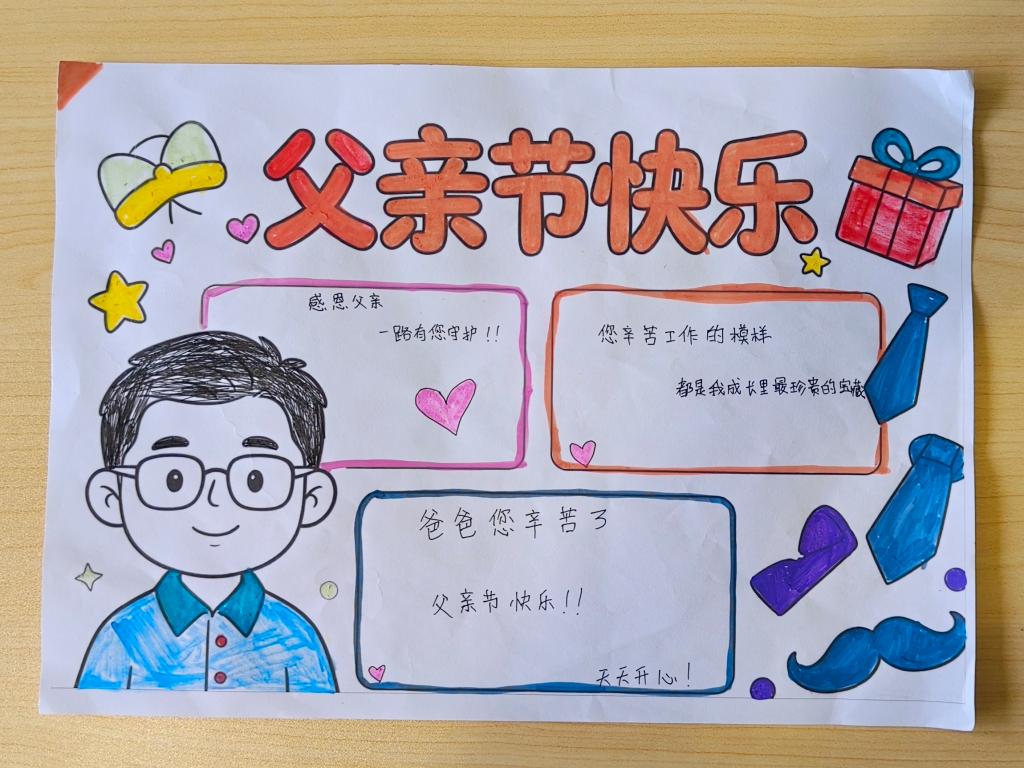 父亲节快乐
感恩父亲
一路有您守护!!
您辛苦工作的模样
都是我成长里最珍贵的宝藏
爸爸您辛苦了
父亲节快乐!!
天天开心!